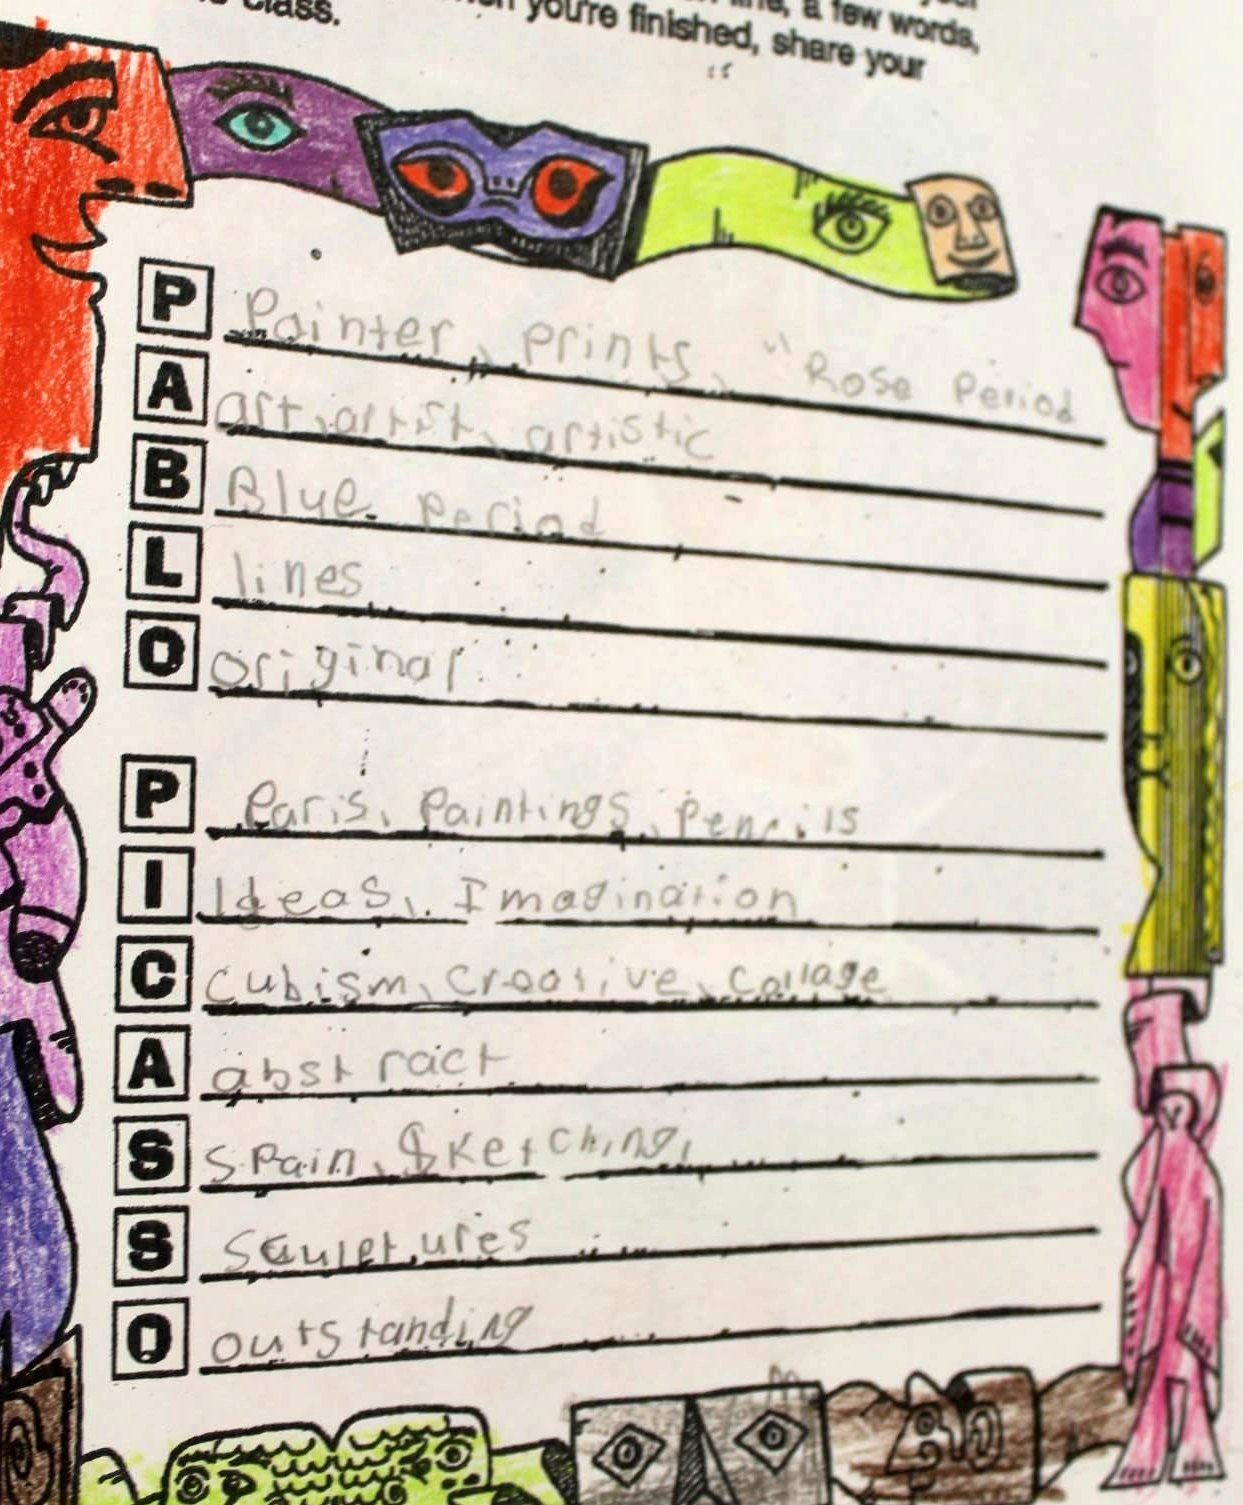 class.
you're finished, share your
a few words,
P Painter, prints, "Rose Period
A art, artist, artistic
B Blue Period
L lines
O original
P Paris, Paintings, Pencils
I Ideas, Imagination
C Cubism, Creative, Collage
A abstract
S Spain, Sketching,
S Sculptures
O outstanding